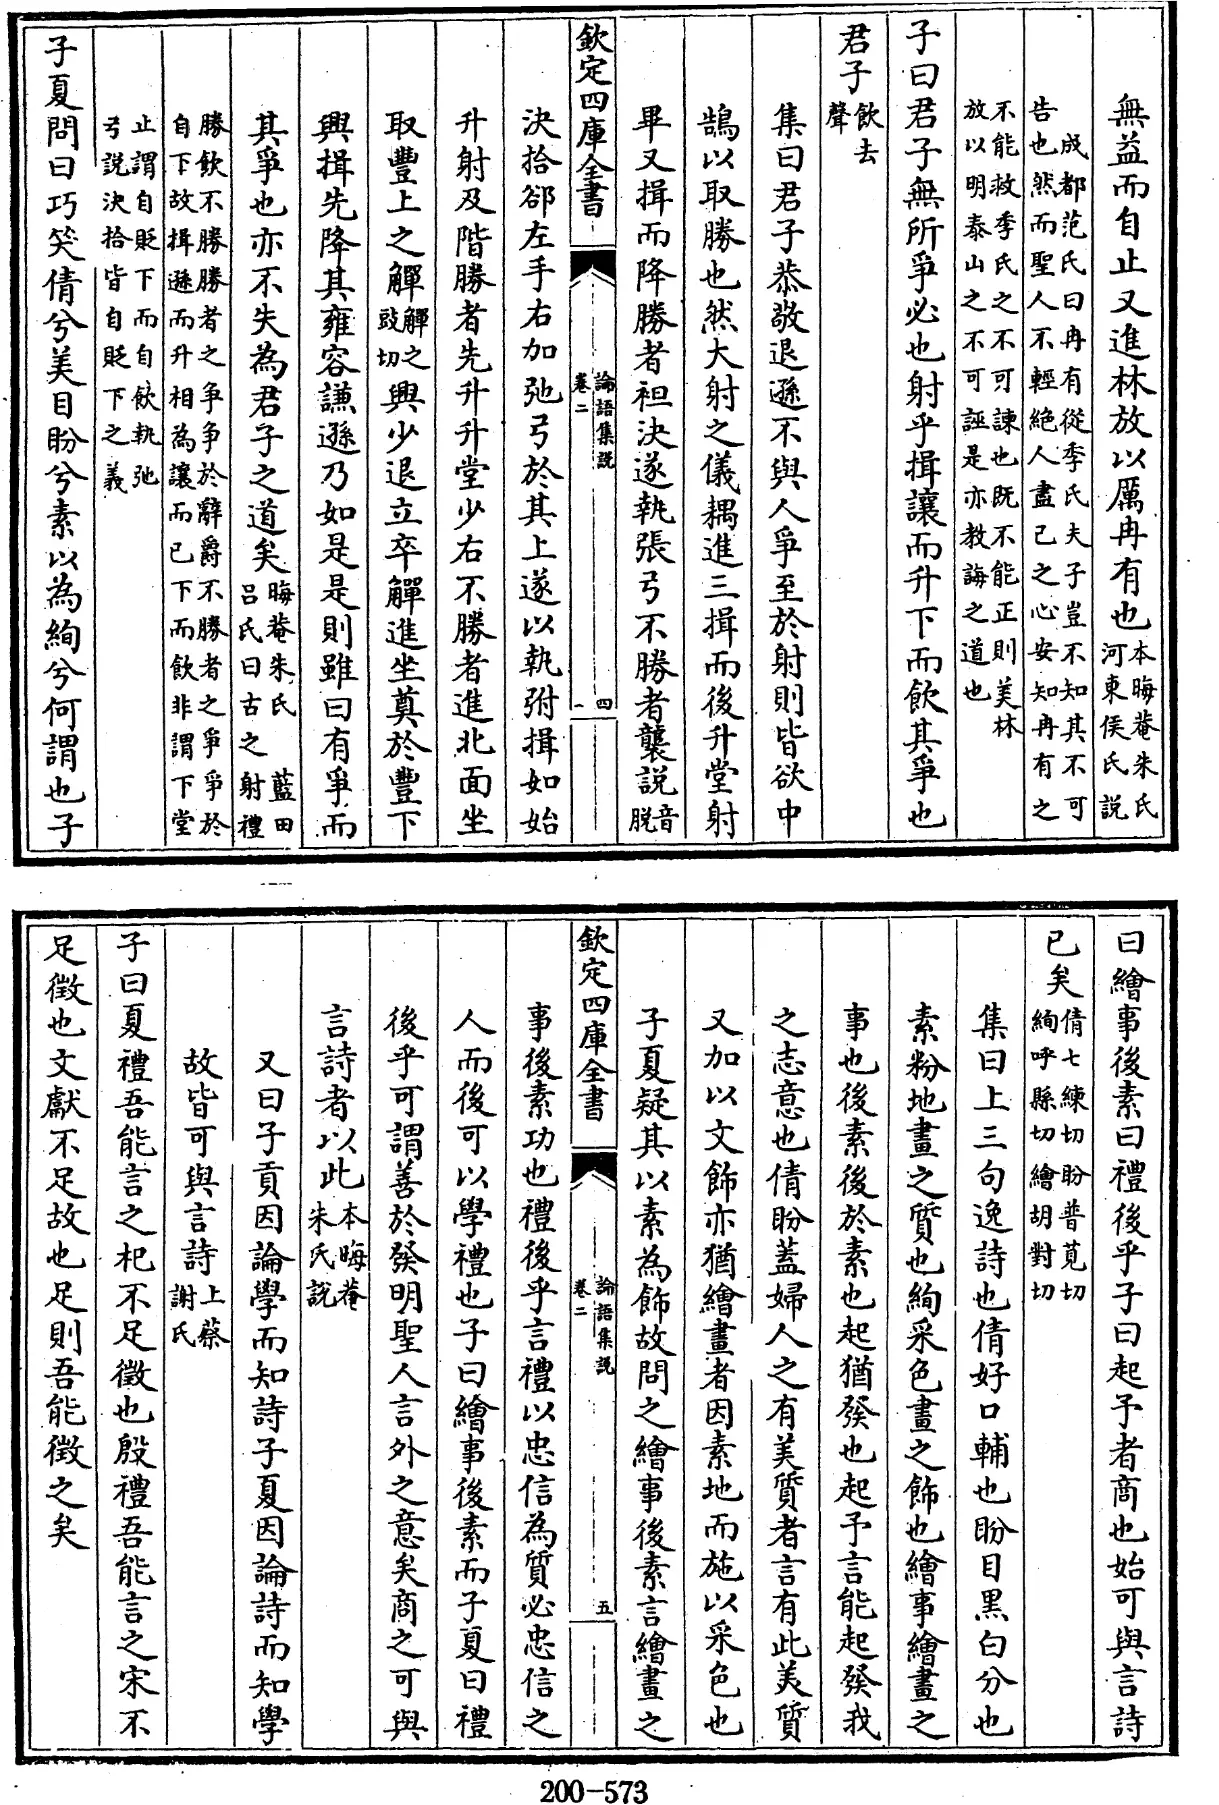 無益而自止又進林放以厲冉有也本晦菴朱氏河東侯氏說
成都范氏曰冉有從季氏夫子豈不知其不可
告也然而聖人不輕絶人盡己之心安知冉有之
不能救季氏之不可諫也既不能正則美林
放以明泰山之不可誣是亦教誨之道也
子曰君子無所爭必也射乎揖讓而升下而飲其爭也
君子飲去聲
集曰君子恭敬退遜不與人爭至於射則皆欲中
鵠以取勝也然大射之儀耦進三揖而後升堂射
畢又揖而降勝者袒決遂執張弓不勝者襲說音脫
欽定四庫全書
論語集說
卷二
四
決拾郤左手右加弛弓於其上遂以執弣揖如始
升射及階勝者先升升堂少右不勝者進北面坐
取豐上之觶觶之豉切興少退立卒觶進坐奠於豐下
興揖先降其雍容謙遜乃如是是則雖曰有爭而
其爭也亦不失為君子之道矣晦菴朱氏 藍田呂氏曰古之射禮
勝飲不勝勝者之爭爭於辭爵不勝者之爭爭於
自下故揖遜而升相為讓而已下而飲非謂下堂
止謂自貶下而自飲執弛
弓說決拾皆自貶下之義
子夏問曰巧笑倩兮美目盼兮素以為絢兮何謂也子
曰繪事後素曰禮後乎子曰起予者商也始可與言詩
已矣倩七練切盼普莧切絢呼縣切繪胡對切
集曰上三句逸詩也倩好口輔也盼目黑白分也
素粉地畫之質也絢采色畫之飾也繪事繪畫之
事也後素後於素也起猶發也起予言能起發我
之志意也倩盼蓋婦人之有美質者言有此美質
又加以文飾亦猶繪畫者因素地而施以采色也
子夏疑其以素為飾故問之繪事後素言繪畫之
欽定四庫全書
論語集說
卷二
五
事後素功也禮後乎言禮以忠信為質必忠信之
人而後可以學禮也子曰繪事後素而子夏曰禮
後乎可謂善於發明聖人言外之意矣商之可與
言詩者以此本晦菴朱氏說
又曰子貢因論學而知詩子夏因論詩而知學
故皆可與言詩上蔡謝氏
子曰夏禮吾能言之杞不足徵也殷禮吾能言之宋不
足徵也文獻不足故也足則吾能徵之矣
200-573